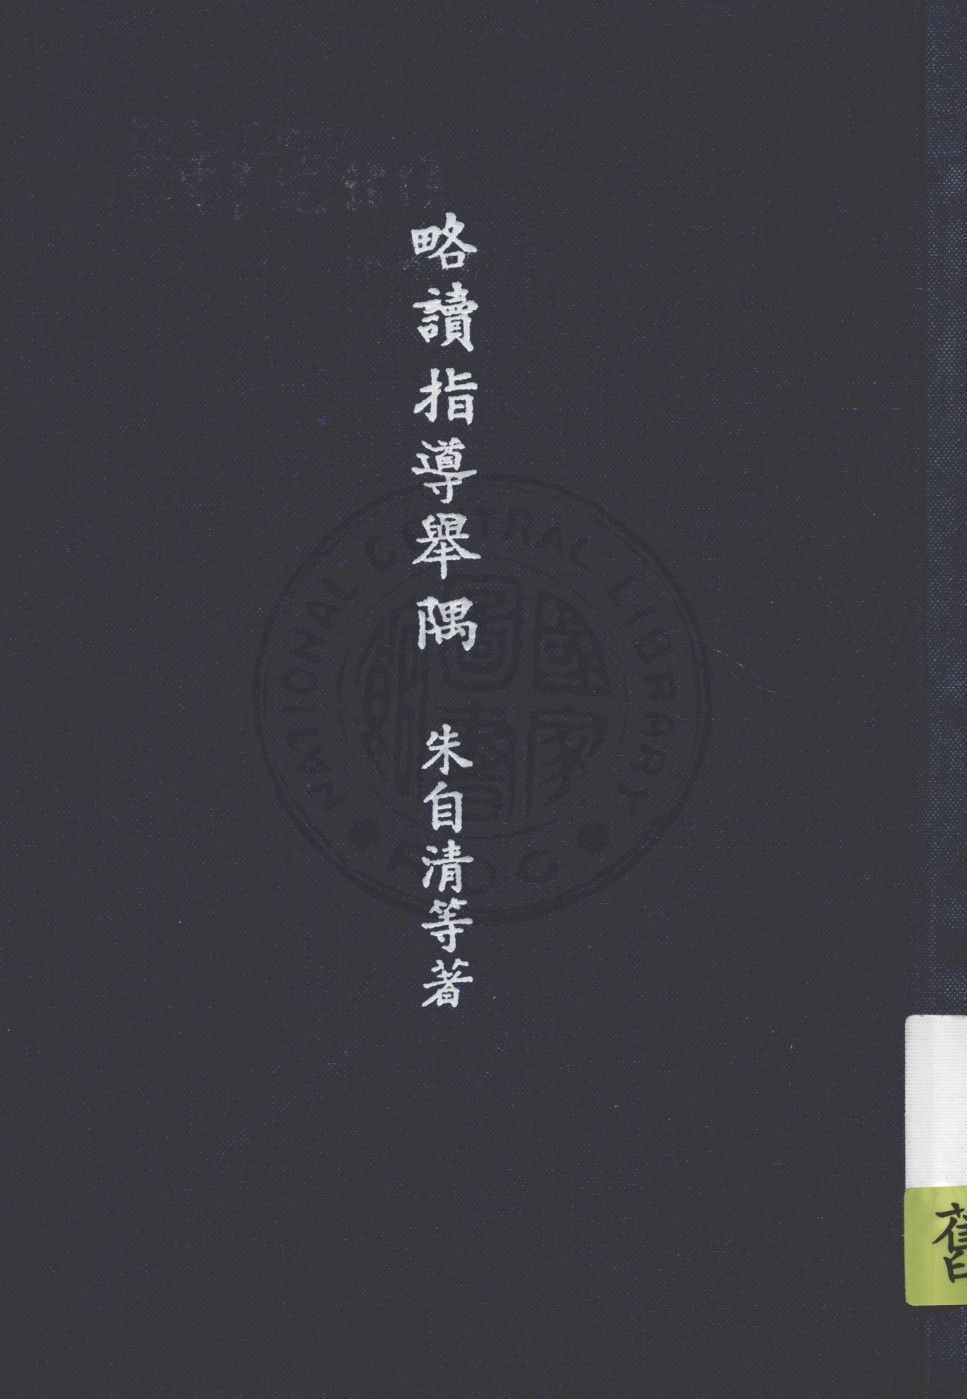 略讀指導舉隅 朱自清等著
NATIONAL CENTRAL LIBRARY
ROC
國家圖書館
舊